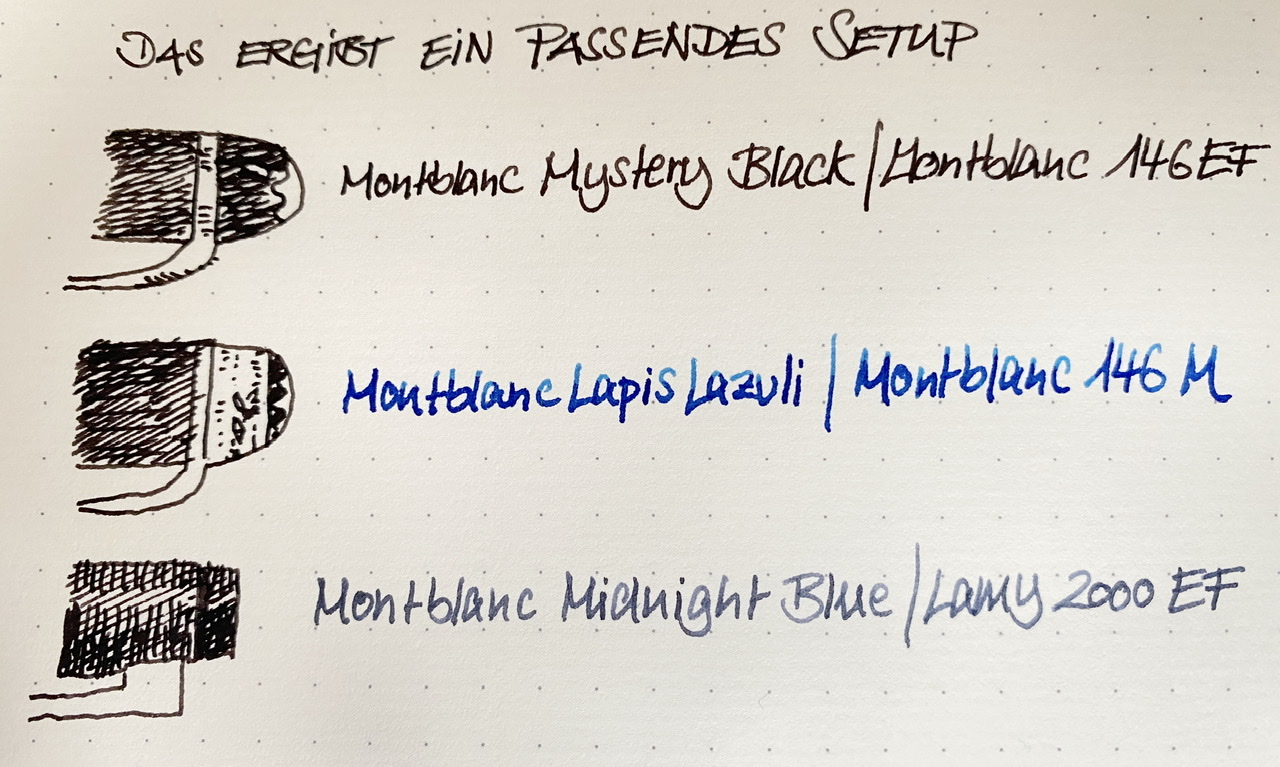 DAS ERGIBT EIN PASSENDES SETUP
Montblanc Mystery Black / Montblanc 146 EF
Montblanc Lapis Lazuli / Montblanc 146 M
Montblanc Midnight Blue / Lamy 2000 EF